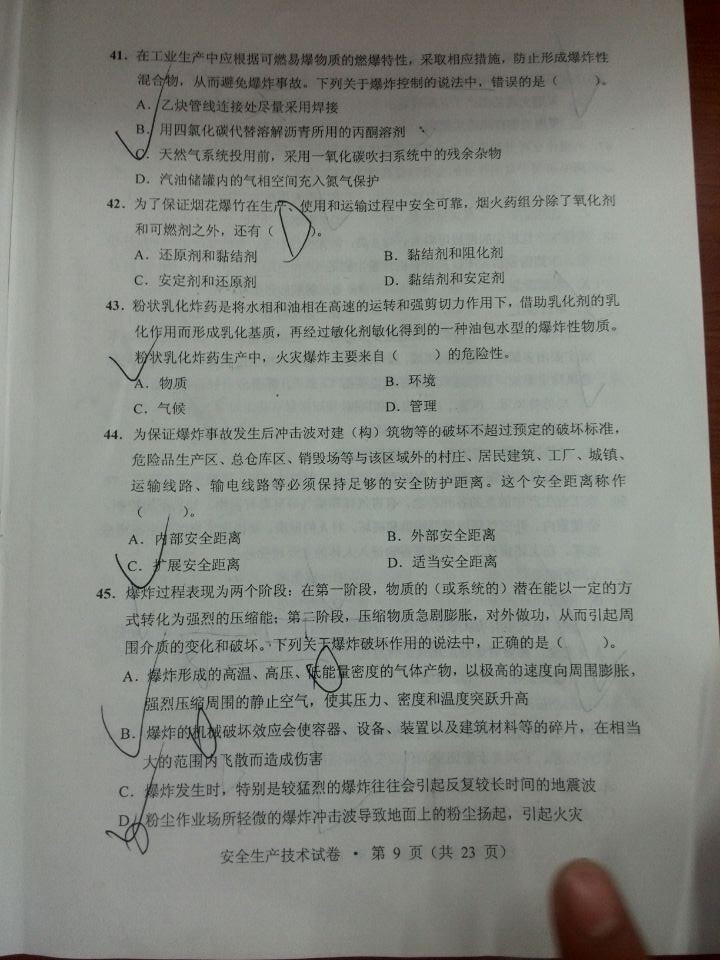 41．在工业生产中应根据可燃易爆物质的燃爆特性，采取相应措施，防止形成爆炸性
混合物，从而避免爆炸事故。下列关于爆炸控制的说法中，错误的是（　　）。
A．乙炔管线连接处尽量采用焊接
B．用四氯化碳代替溶解沥青所用的丙酮溶剂
C．天然气系统投用前，采用一氧化碳吹扫系统中的残余杂物
D．汽油储罐内的气相空间充入氮气保护
42．为了保证烟花爆竹在生产、使用和运输过程中安全可靠，烟火药组分除了氧化剂
和可燃剂之外，还有（　D　）。
A．还原剂和黏结剂　　B．黏结剂和阻化剂
C．安定剂和还原剂　　D．黏结剂和安定剂
43．粉状乳化炸药是将水相和油相在高速的运转和强剪切力作用下，借助乳化剂的乳
化作用而形成乳化基质，再经过敏化剂敏化得到的一种油包水型的爆炸性物质。
粉状乳化炸药生产中，火灾爆炸主要来自（　　）的危险性。
A．物质　　B．环境
C．气候　　D．管理
44．为保证爆炸事故发生后冲击波对建（构）筑物等的破坏不超过预定的破坏标准，
危险品生产区、总仓库区、销毁场等与该区域外的村庄、居民建筑、工厂、城镇、
运输线路、输电线路等必须保持足够的安全防护距离。这个安全距离称作
（　　）。
A．内部安全距离　　B．外部安全距离
C．扩展安全距离　　D．适当安全距离
45．爆炸过程表现为两个阶段：在第一阶段，物质的（或系统的）潜在能以一定的方
式转化为强烈的压缩能；第二阶段，压缩物质急剧膨胀，对外做功，从而引起周
围介质的变化和破坏。下列关于爆炸破坏作用的说法中，正确的是（　　）。
A．爆炸形成的高温、高压、低能量密度的气体产物，以极高的速度向周围膨胀，
强烈压缩周围的静止空气，使其压力、密度和温度突跃升高
B．爆炸的机械破坏效应会使容器、设备、装置以及建筑材料等的碎片，在相当
大的范围内飞散而造成伤害
C．爆炸发生时，特别是较猛烈的爆炸往往会引起反复较长时间的地震波
D．粉尘作业场所轻微的爆炸冲击波导致地面上的粉尘扬起，引起火灾
安全生产技术试卷 · 第 9 页（共 23 页）